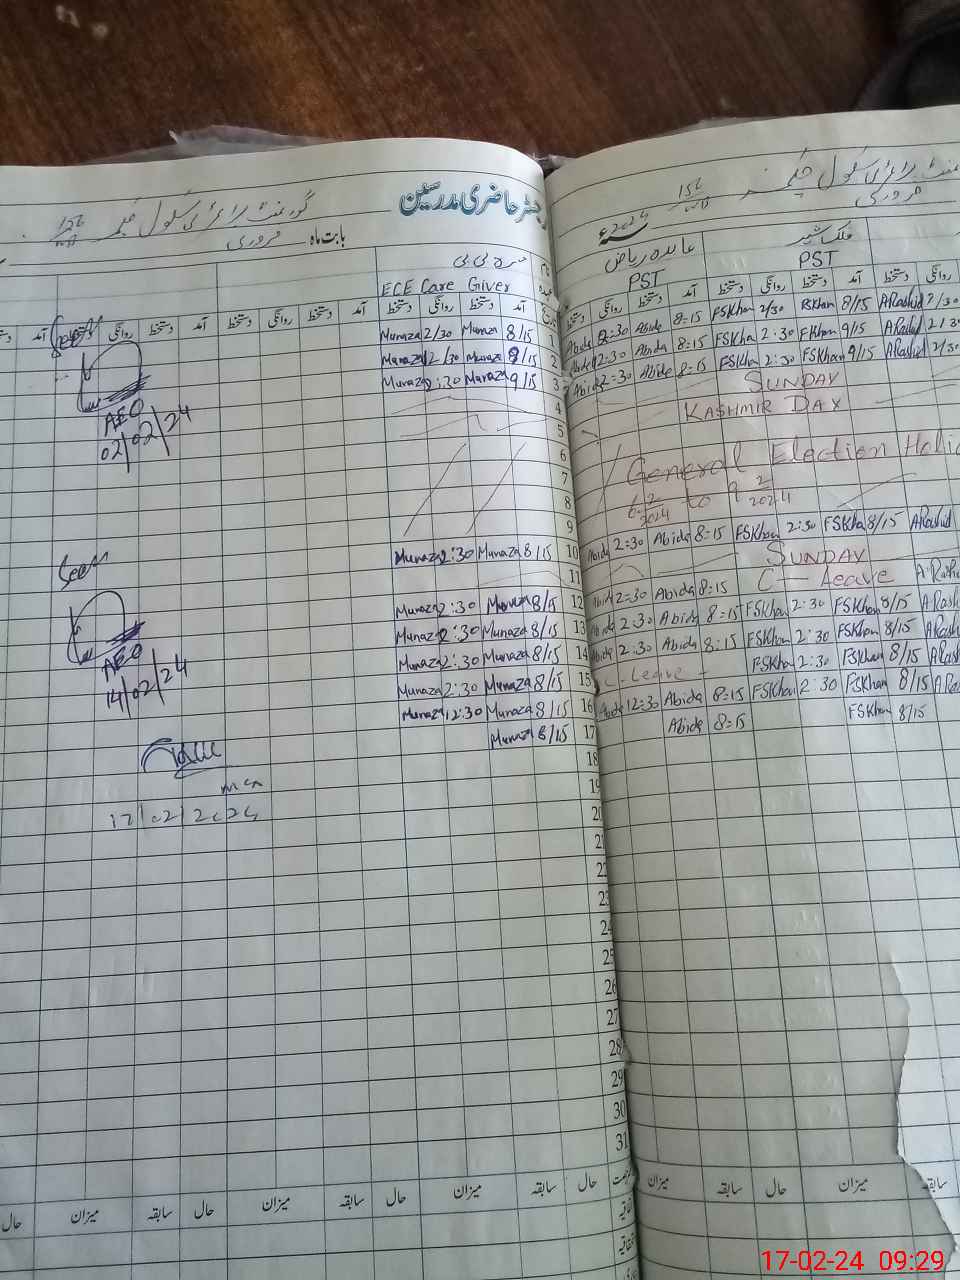 رجسٹر حاضری مدرسین
گورنمنٹ پرائمری سکول
بابت ماہ فروری
ECE Care Giver
آمد دستخط روانگی دستخط آمد دستخط روانگی دستخط آمد
1 8/15 Munaza 2/30 Munaza
2 8/15 Munaza 2/30 Munaza
3 9/15 Munaza 2:30 Munaza
4
5
6
7
8
9
10 8/15 Munaza 2:30 Munaza
11
12 8/15 Munaza 2:30 Munaza
13 8/15 Munaza 2:30 Munaza
14 8/15 Munaza 2:30 Munaza
15 8/15 Munaza 2:30 Munaza
16 8/15 Munaza 12:30 Munaza
17 8/15 Munaza
18
19
20
21
22
23
24
25
26
27
28
29
30
31
Seen
AEO
02/02/24
Seen
AEO
14/02/24
17/02/2024
حال سابقہ میزان حال سابقہ میزان حال سابقہ میزان حال
گورنمنٹ پرائمری سکول
فروری
2024ء
عابدہ ریاض
فلک شیر
PST
PST
آمد دستخط روانگی دستخط آمد دستخط روانگی دستخط
Abida 2:30 Abida 8=15 FSKhan 2/30 FSKhan 8/15 ARashid 2/30
Abida 12=30 Abida 8=15 FSKhan 2:30 FKhan 9/15 ARashid 2/30
Abida 2=30 Abida 8=15 FSKhan 2:30 FSKhan 9/15 ARashid 2/30
SUNDAY
KASHMIR DAY
General Election Holi
6-2-2024 to 9-2-2024
Abida 2=30 Abida 8=15 FSKhan 2:30 FSKha 8/15 ARashid
SUNDAY
Abida 2=30 Abida 8=15 C-Leave A.Rash
Abida 2:30 Abida 8=15 FSKhan 2:30 FSKhan 8/15 ARash
Abida 2:30 Abida 8:15 FSKhan 2:30 FSKhan 8/15 ARash
C-Leave - FSKhan 2:30 FSKhan 8/15 ARash
Abida 12=30 Abida 8=15 FSKhan 2:30 FSKhan 8/15 ARa
Abida 8=15 FSKhan 8/15
میزان سابقہ حال میزان سابقہ
17-02-24 09:29